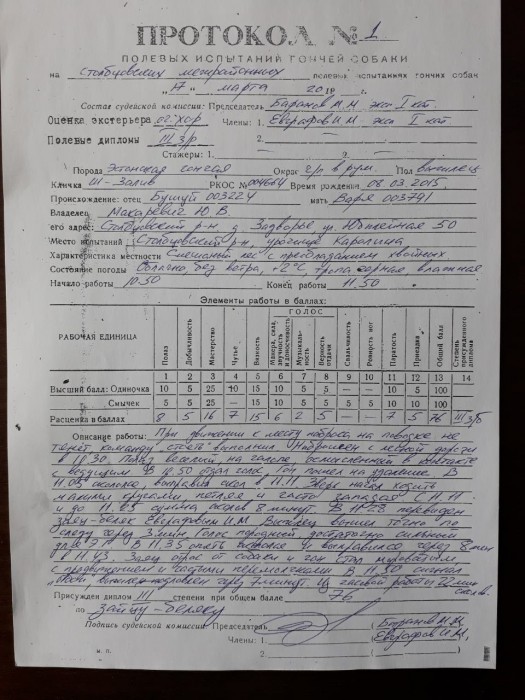 ПРОТОКОЛ № 1
ПОЛЕВЫХ ИСПЫТАНИЙ ГОНЧЕЙ СОБАКИ
на Столбцовских межрайонных полевых испытаниях гончих собак
„17" марта 2019 г.
Состав судейской комиссии: Председатель Баранов М.Н. эксп I кат.
Оценка экстерьера оч/хор Члены: 1. Евграфов И.М эксп I кат.
Полевые дипломы III з/р 2.
Стажеры: 1. 2.
Порода Эстонская гончая Окрас ч/п в рум. Пол выжлец
Кличка Ш-Залив РКОС № 004664 Время рождения 08.03.2015
Происхождение: отец Бушуй 003224 мать Варя 003791
Владелец Макаревич Ю.В.
его адрес: Столбцовский р-н д. Задворье ул. Юбилейная 50
Место испытаний Столбцовский р-н, урочище Каролина
Характеристика местности Смешаный лес с преобладанием хвойных
Состояние погоды Облачно без ветра, +2°С тропа черная, влажная
Начало работы 10.50 Конец работы 11.50
Элементы работы в баллах:
РАБОЧАЯ ЕДИНИЦА
ГОЛОС
Полаз Добычливость Мастерство Чутье Вязкость Манера, сила, звучность и доносчивость Музыкальность Верность отдачи Свальчивость Ровность ног Паратость Приездка Общий балл Степень присужденного диплома
1 2 3 4 5 6 7 8 9 10 11 12 13 14
Высший балл: Одиночка 10 5 25 10 15 10 5 5 — — 10 5 100
Смычек 10 5 25 10 15 10 5 5 5 5 10 5 100
Расценка в баллах 8 5 16 7 15 6 2 5 — — 7 5 76 III з/б
Описание работы: При движении к месту наброса на поводке не
тянет, команду стоять выполнил. Наброшен с лесной дороги
в 10.30. Полаз веселый, на галопе, осмысленный в контакте
с ведущим. В 10.50 отдал голос, гон пошел на удаление. В
11.05 сколола, выправил скол в 11.11. Зверь начал ходить
малыми кругами, петляя и часто западая. С 11.11
и до 11.25 сумма сколов 8 минут. В 11.28 перевиден
заяц-беляк Евграфовым И.М. Выжлец вышел точно по
следу через 3 мин. Голос породный достаточно сильный
для Э.Г. В 11.35 опять и выправился через 8 мин
в 11.43. Заяц от собаки и гон стал
с продвижением и частыми перемолчками. В 11.50 сигнал
через 7 минут. Из часовой работы 22 мин
скола.
Присужден диплом III степени при общем балле 76
по зайцу-беляку
Подпись судейской комиссии: Председатель (Баранов М.Н.
Члены: 1. (Евграфов И.М.
2
м. п.